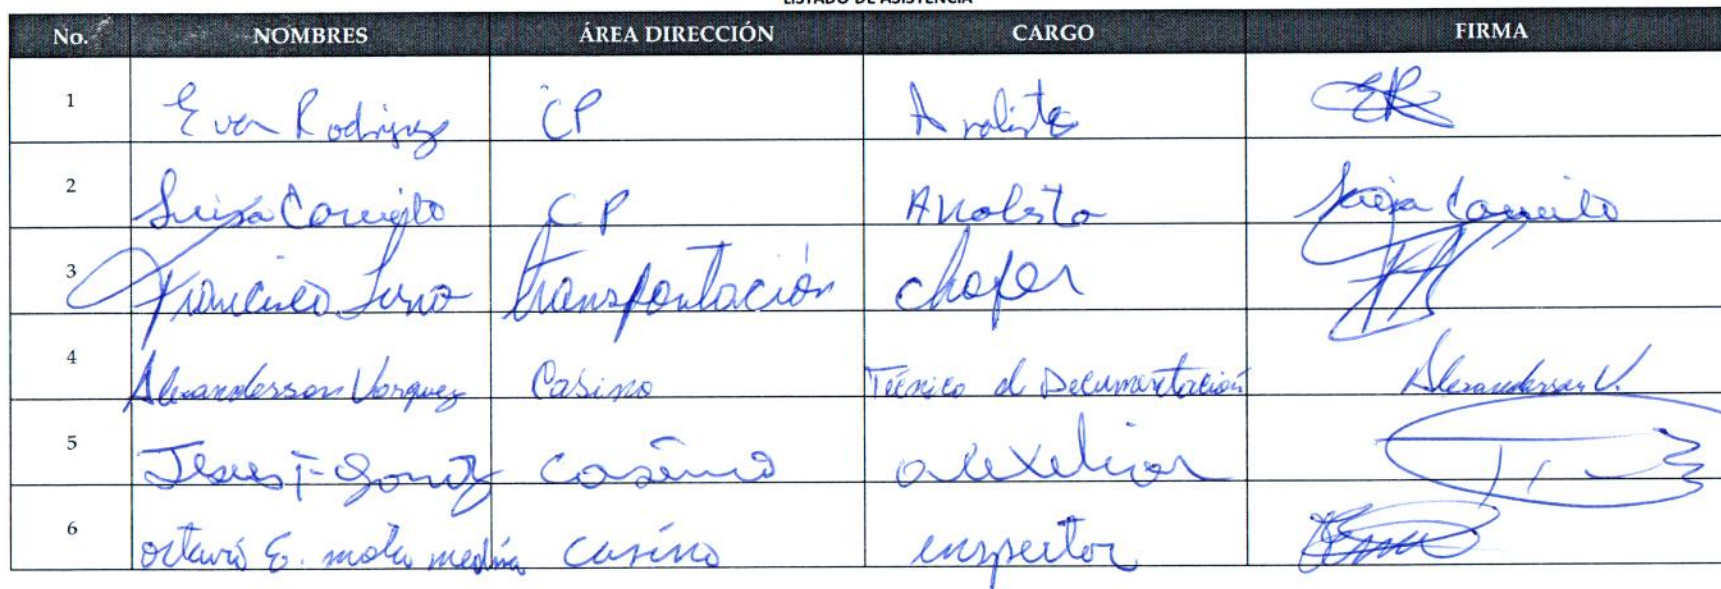 LISTADO DE ASISTENCIA
No. NOMBRES ÁREA DIRECCIÓN CARGO FIRMA
1 Eva Rodriguez CP Analista ER
2 Luisa Carrillo CP Analista Luisa Carrillo
3 Francisco transportación chofer
4 Alexandersson Vasquez Casino Técnico d Documentación Alexandersson V.
5 Jesus T. casino auxeliar
6 octavio E. mota medina casino enspector